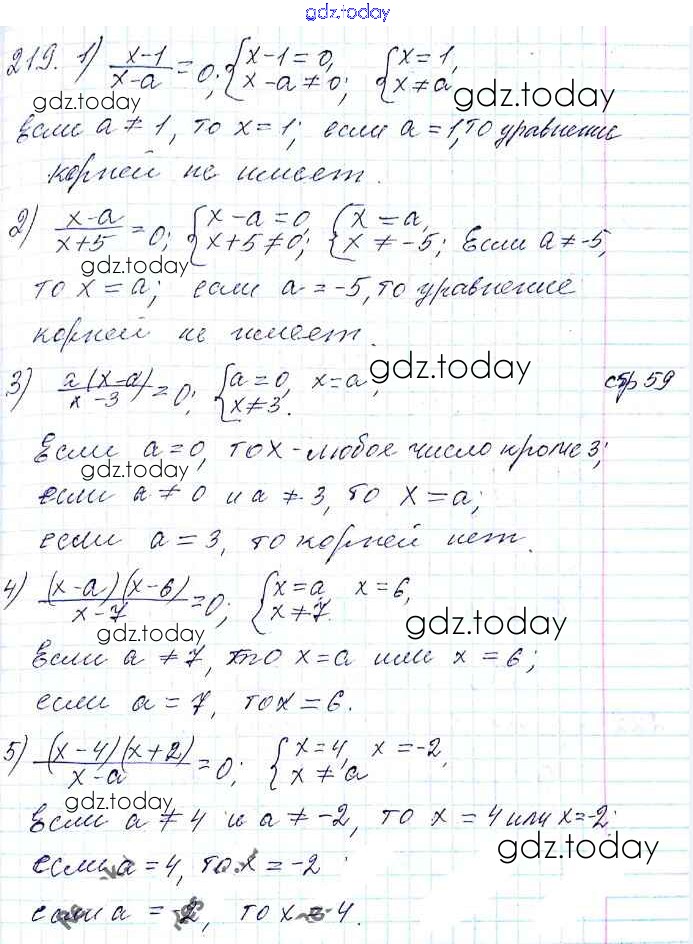 gdz.today
219. 1) (x-1)/(x-a) = 0; {x-1=0, x-a≠0; {x=1, x≠a
gdz.today gdz.today
Если a≠1, то x=1; если a=1, то уравнение
корней не имеет.
2) (x-a)/(x+5) = 0; {x-a=0, x+5≠0; {x=a, x≠-5; Если a≠-5,
gdz.today
то x=a; если a=-5, то уравнение
корней не имеет.
gdz.today
3) a(x-a)/(x-3) = 0; {a=0, x=a, x≠3. стр 59
gdz.today
Если a=0, то x-любое число кроме 3;
gdz.today
если a≠0 и a≠3, то x=a;
если a=3, то корней нет.
4) (x-a)(x-6)/(x-7) = 0; {x=a, x=6, x≠7.
gdz.today gdz.today
Если a≠7, то x=a или x=6;
если a=7, то x=6.
5) (x-4)(x+2)/(x-a) = 0; {x=4, x=-2, x≠a
gdz.today
Если a≠4 и a≠-2, то x=4 или x=-2;
gdz.today
если a=4, то x=-2
если a=-2, то x=4.